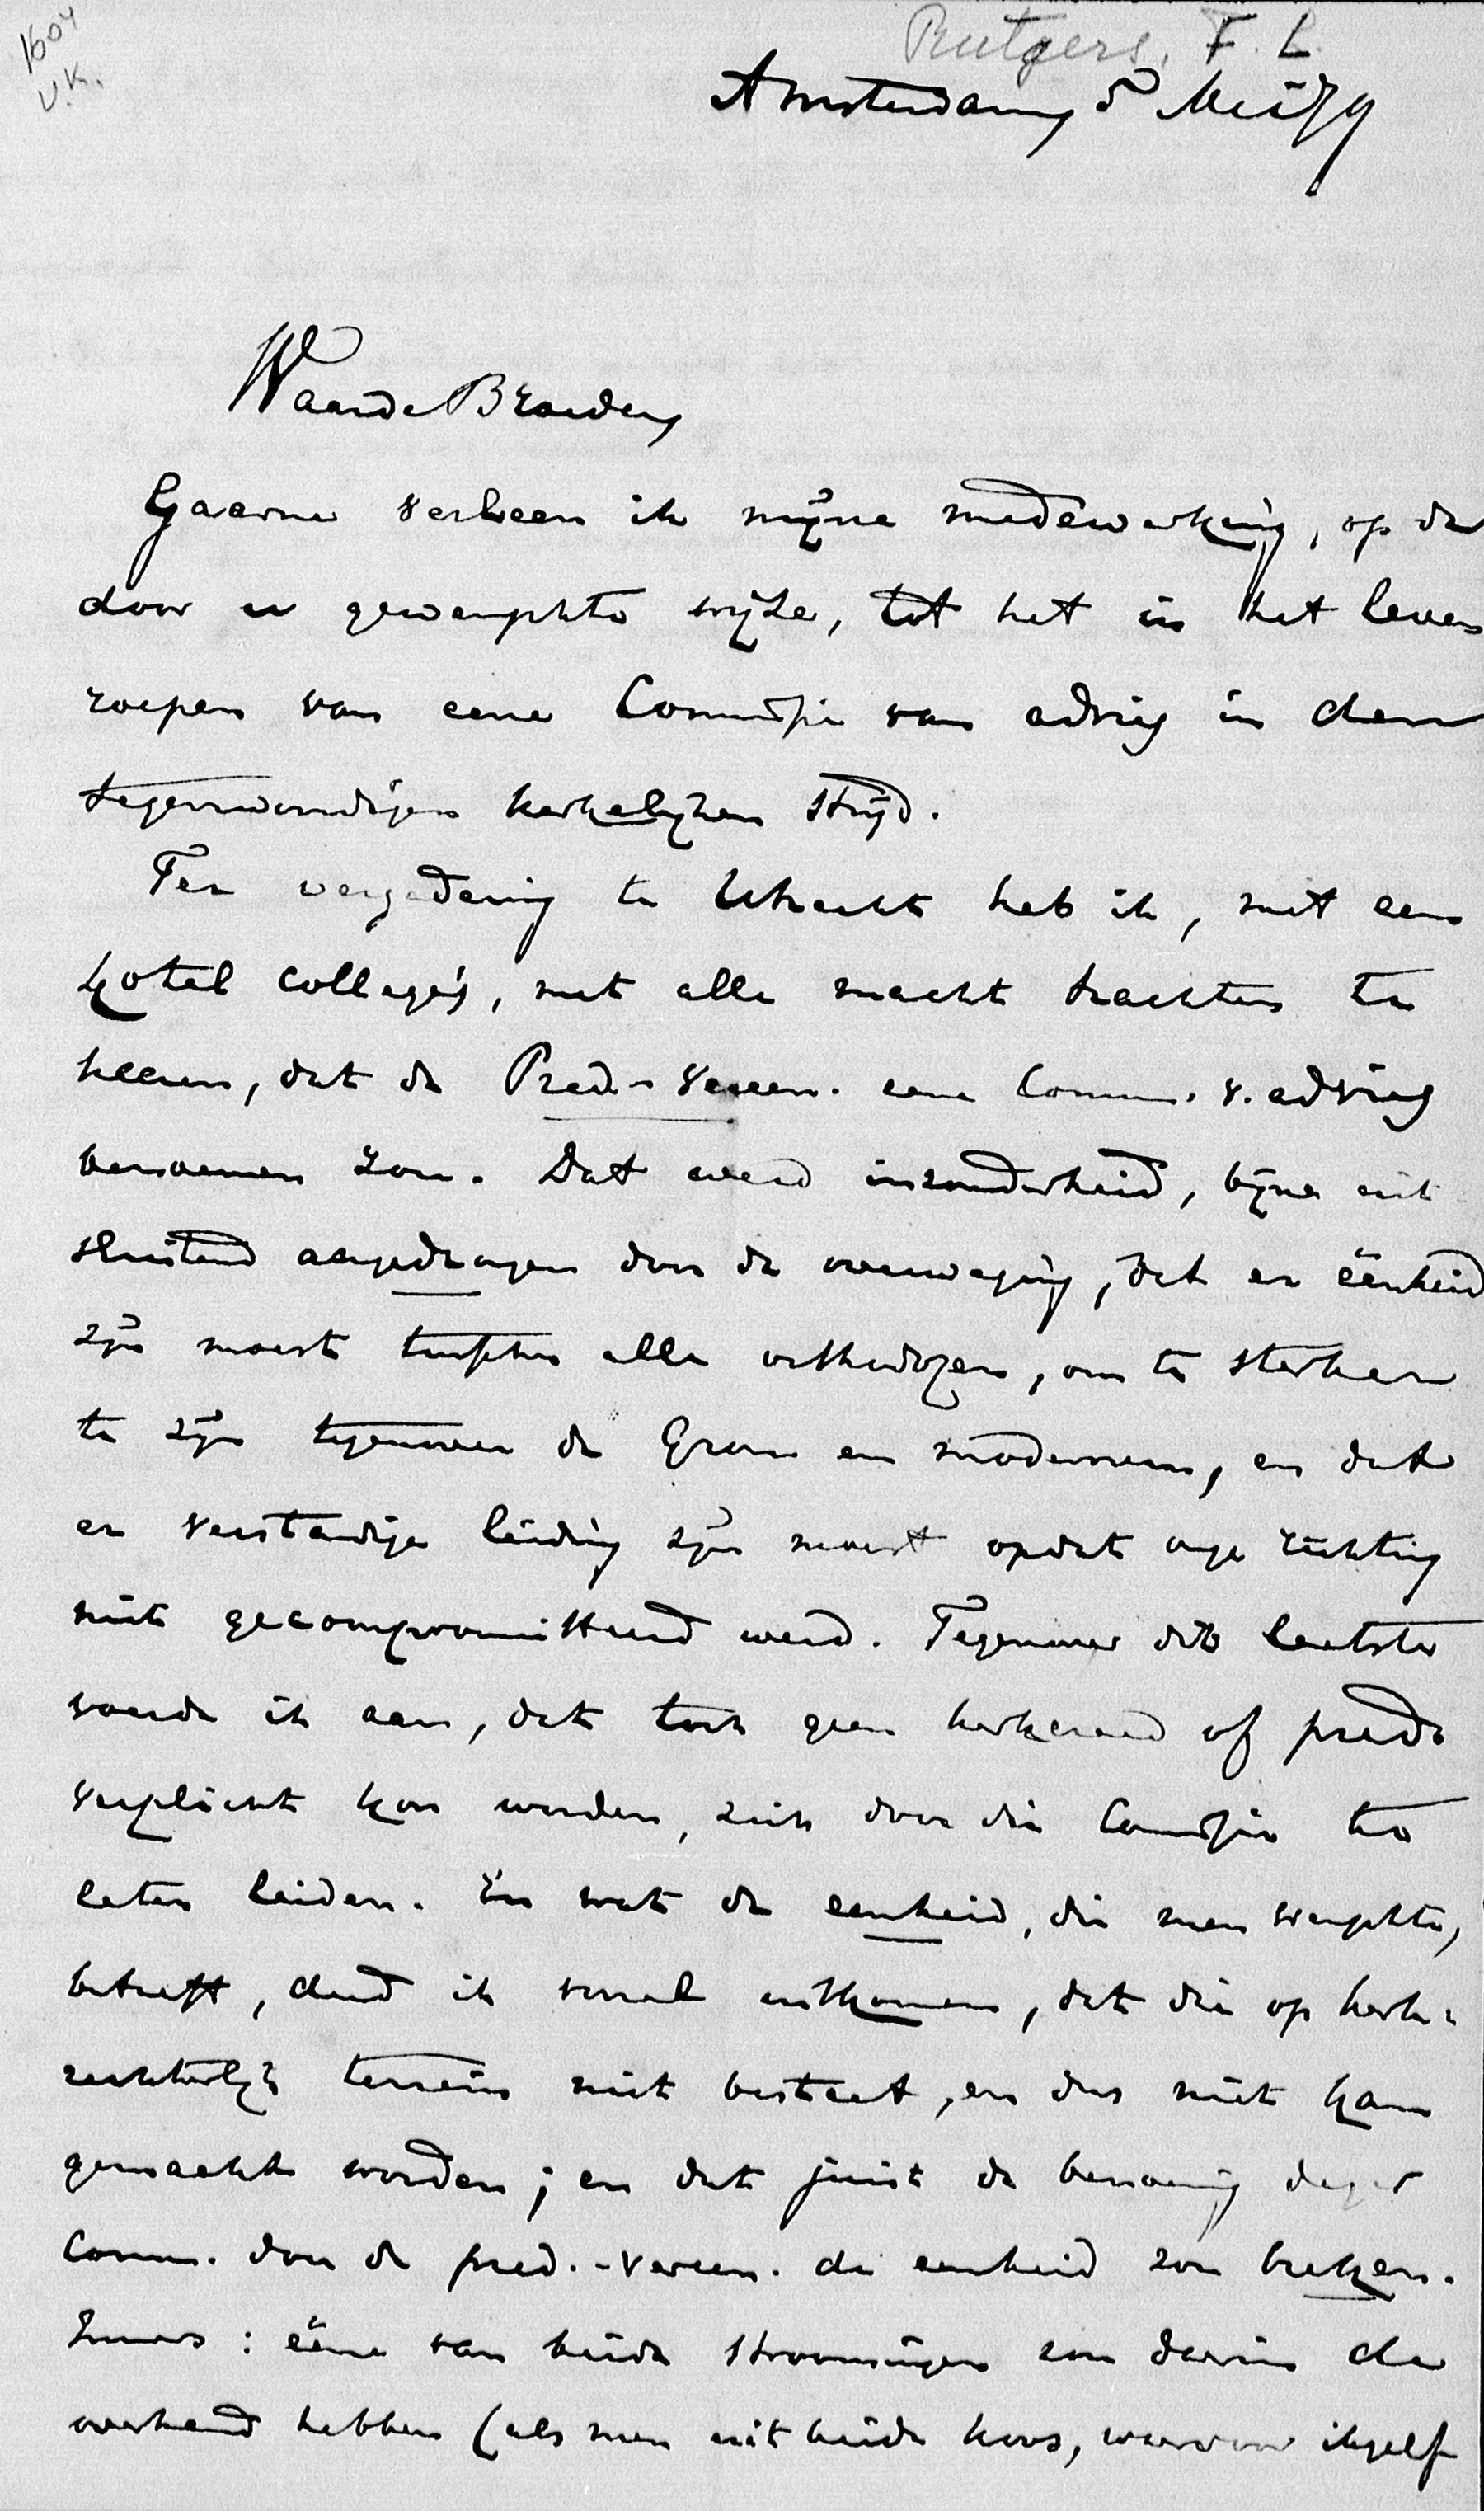 1604
V.K.
Rutgers, F. L.
Amsterdam 5 Mei 79
Waarde Broeders
Gaarne verleen ik mijne medewerking, op de
door u gewenschte wijze, tot het in het leven
roepen van eene Commissie van advies in den
tegenwoordigen kerkelijken strijd.
Ter vergadering te Utrecht heb ik, met een
tal collega's, met alle macht trachten te
keeren, dat de Pred.-Vereen. eene Comm. v. advies
benoemen zou. Dat werd inzonderheid, bijna uit
sluitend aangedrongen door de overweging, dat er éénheid
zijn moest tusschen alle orthodoxen, om te sterker
te zijn tegenover de Gron. en modernen, en dat
er verstandige leiding zijn moest opdat onze richting
niet gecompromitteerd werd. Tegenover dit laatste
voerde ik aan, dat toch geen kerkeraad of pred.
verplicht kon worden, zich door die Commissie te
laten leiden. En wat de eenheid, die men wenschte,
betreft, deed ik vooral uitkomen, dat die op kerk-
rechterlijk terrein niet bestaat, en dus niet kan
gemaakt worden; en dat juist de benoeming dezer
Comm. door de pred.-vereen. de eenheid zou breken.
Immers: ééne van beide stroomingen zou daarin de
overhand hebben (als men uit beide koos, waarvoor ikzelf